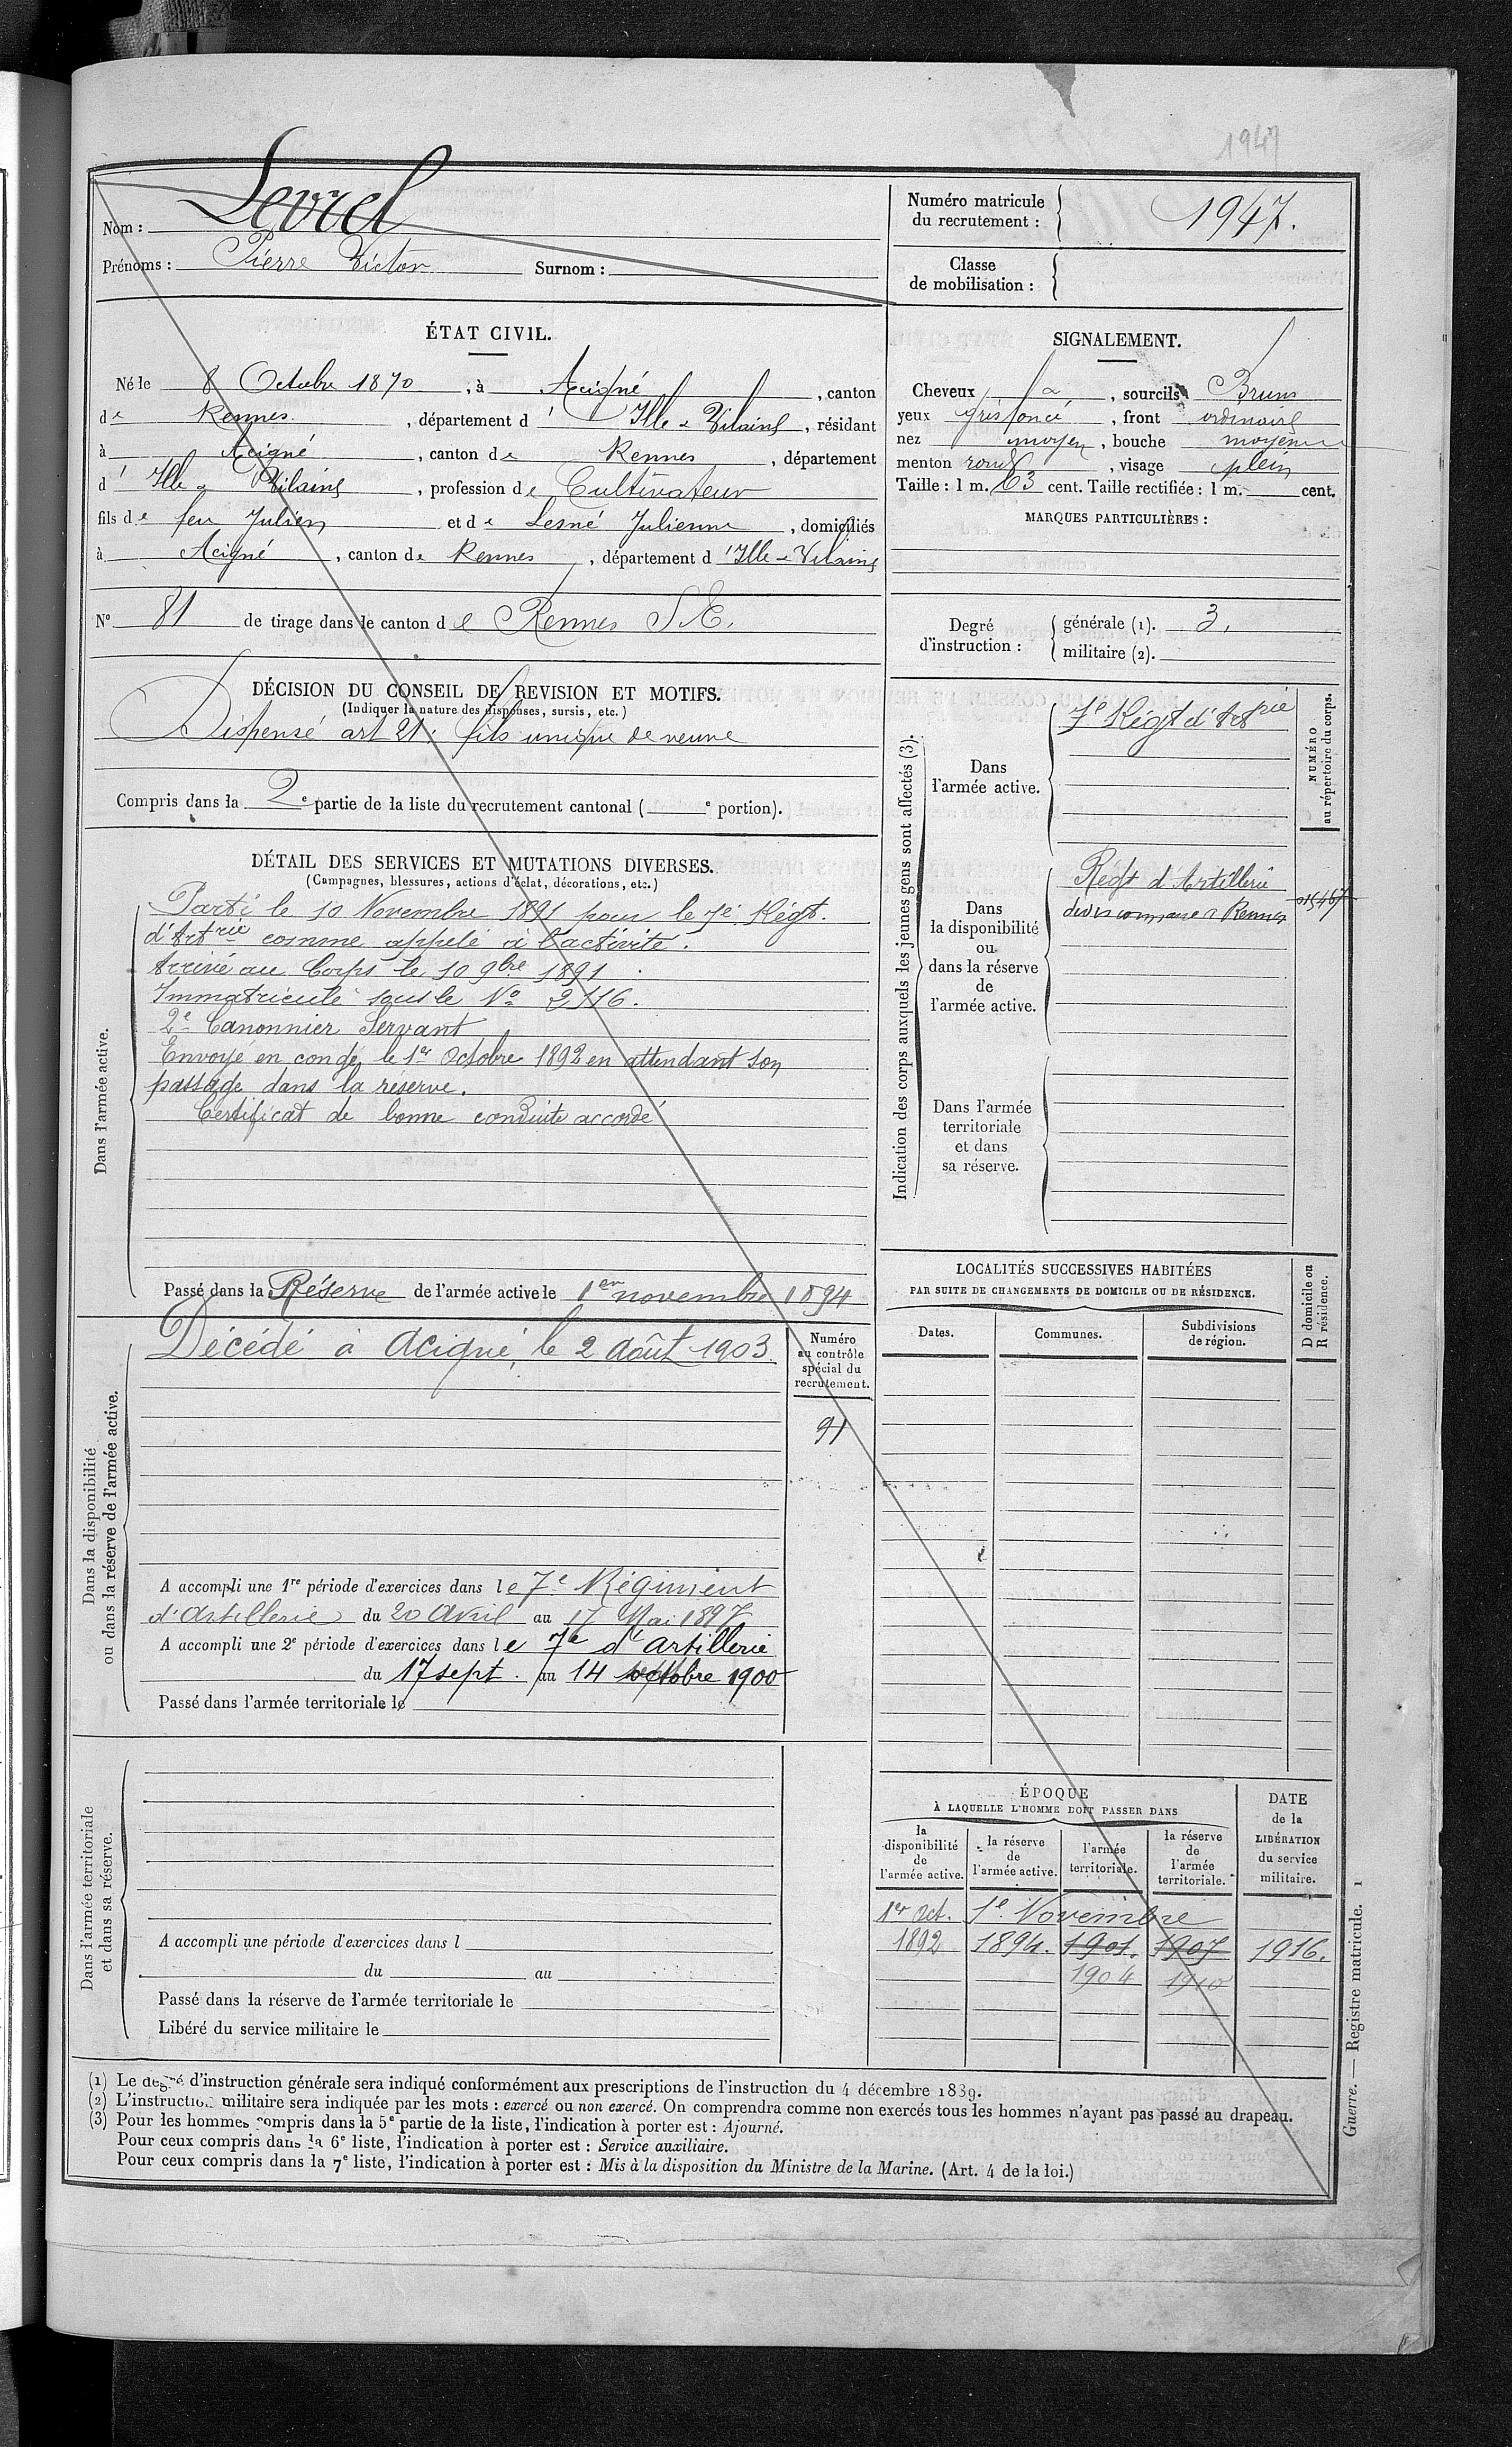 1947
Nom : Levrel
Prénoms : Pierre Victor Surnom :
Numéro matricule
du recrutement : 1947.
Classe
de mobilisation :
ÉTAT CIVIL.
Né le 8 Octobre 1870, à Acigné, canton
de Rennes, département d'Ille & Vilaine, résidant
à Acigné, canton de Rennes, département
d'Ille & Vilaine, profession de Cultivateur
fils de feu Julien et de Lesné Julienne, domiciliés
à Acigné, canton de Rennes, département d'Ille & Vilaine
N° 81 de tirage dans le canton de Rennes S.E.
SIGNALEMENT.
Cheveux, sourcils Bruns
yeux gris foncé, front ordinaire
nez moyen, bouche moyenne
menton rond, visage plein
Taille : 1 m. 63 cent. Taille rectifiée : 1 m. cent.
MARQUES PARTICULIÈRES :
Degré
d'instruction :
générale (1). 3.
militaire (2).
DÉCISION DU CONSEIL DE REVISION ET MOTIFS.
(Indiquer la nature des dispenses, sursis, etc.)
Dispensé art 21 : fils unique de veuve
Compris dans la 2e partie de la liste du recrutement cantonal ( e portion).
DÉTAIL DES SERVICES ET MUTATIONS DIVERSES.
(Campagnes, blessures, actions d'éclat, décorations, etc.)
Dans l'armée active.
Parti le 10 Novembre 1891 pour le 7e Régt.
d'Artrie comme appelé à l'activité.
Arrivé au Corps le 10 9bre 1891.
Immatriculé sous le N° 2116.
2e Canonnier Servant
Envoyé en congé le 1er Octobre 1892 en attendant son
passage dans la réserve.
Certificat de bonne conduite accordé
Passé dans la Réserve de l'armée active le 1er novembre 1894
Indication des corps auxquels les jeunes gens sont affectés (3).
NUMÉRO
au répertoire du corps.
Dans
l'armée active.
7e Régt d'Artrie
Dans
la disponibilité
ou
dans la réserve
de
l'armée active.
Régt d'Artillerie
à Rennes
Dans l'armée
territoriale
et dans
sa réserve.
Dans la disponibilité
ou dans la réserve de l'armée active.
Décédé à Acigné, le 2 Août 1903.
Numéro
au contrôle
spécial du
recrutement.
91
A accompli une 1re période d'exercices dans le 7e Régiment
d'Artillerie du 20 Avril au 17 Mai 1897
A accompli une 2e période d'exercices dans le 7e d'artillerie
du 17 sept. au 14 octobre 1900
Passé dans l'armée territoriale le
LOCALITÉS SUCCESSIVES HABITÉES
PAR SUITE DE CHANGEMENTS DE DOMICILE OU DE RÉSIDENCE.
D domicile ou
R résidence.
Dates. Communes. Subdivisions
de région.
Dans l'armée territoriale
et dans sa réserve.
A accompli une période d'exercices dans l
du au
Passé dans la réserve de l'armée territoriale le
Libéré du service militaire le
ÉPOQUE
À LAQUELLE L'HOMME DOIT PASSER DANS
la
disponibilité
de
l'armée active.
la réserve
de
l'armée active.
l'armée
territoriale.
la réserve
de
l'armée
territoriale.
DATE
de la
LIBÉRATION
du service
militaire.
1er Oct. 1er Novembre
1892 1894. 1901. 1907 1916.
1904 1910
(1) Le degré d'instruction générale sera indiqué conformément aux prescriptions de l'instruction du 4 décembre 1839.
(2) L'instruction militaire sera indiquée par les mots : exercé ou non exercé. On comprendra comme non exercés tous les hommes n'ayant pas passé au drapeau.
(3) Pour les hommes compris dans la 5e partie de la liste, l'indication à porter est : Ajourné.
Pour ceux compris dans la 6e liste, l'indication à porter est : Service auxiliaire.
Pour ceux compris dans la 7e liste, l'indication à porter est : Mis à la disposition du Ministre de la Marine. (Art. 4 de la loi.)
Guerre. — Registre matricule. 1